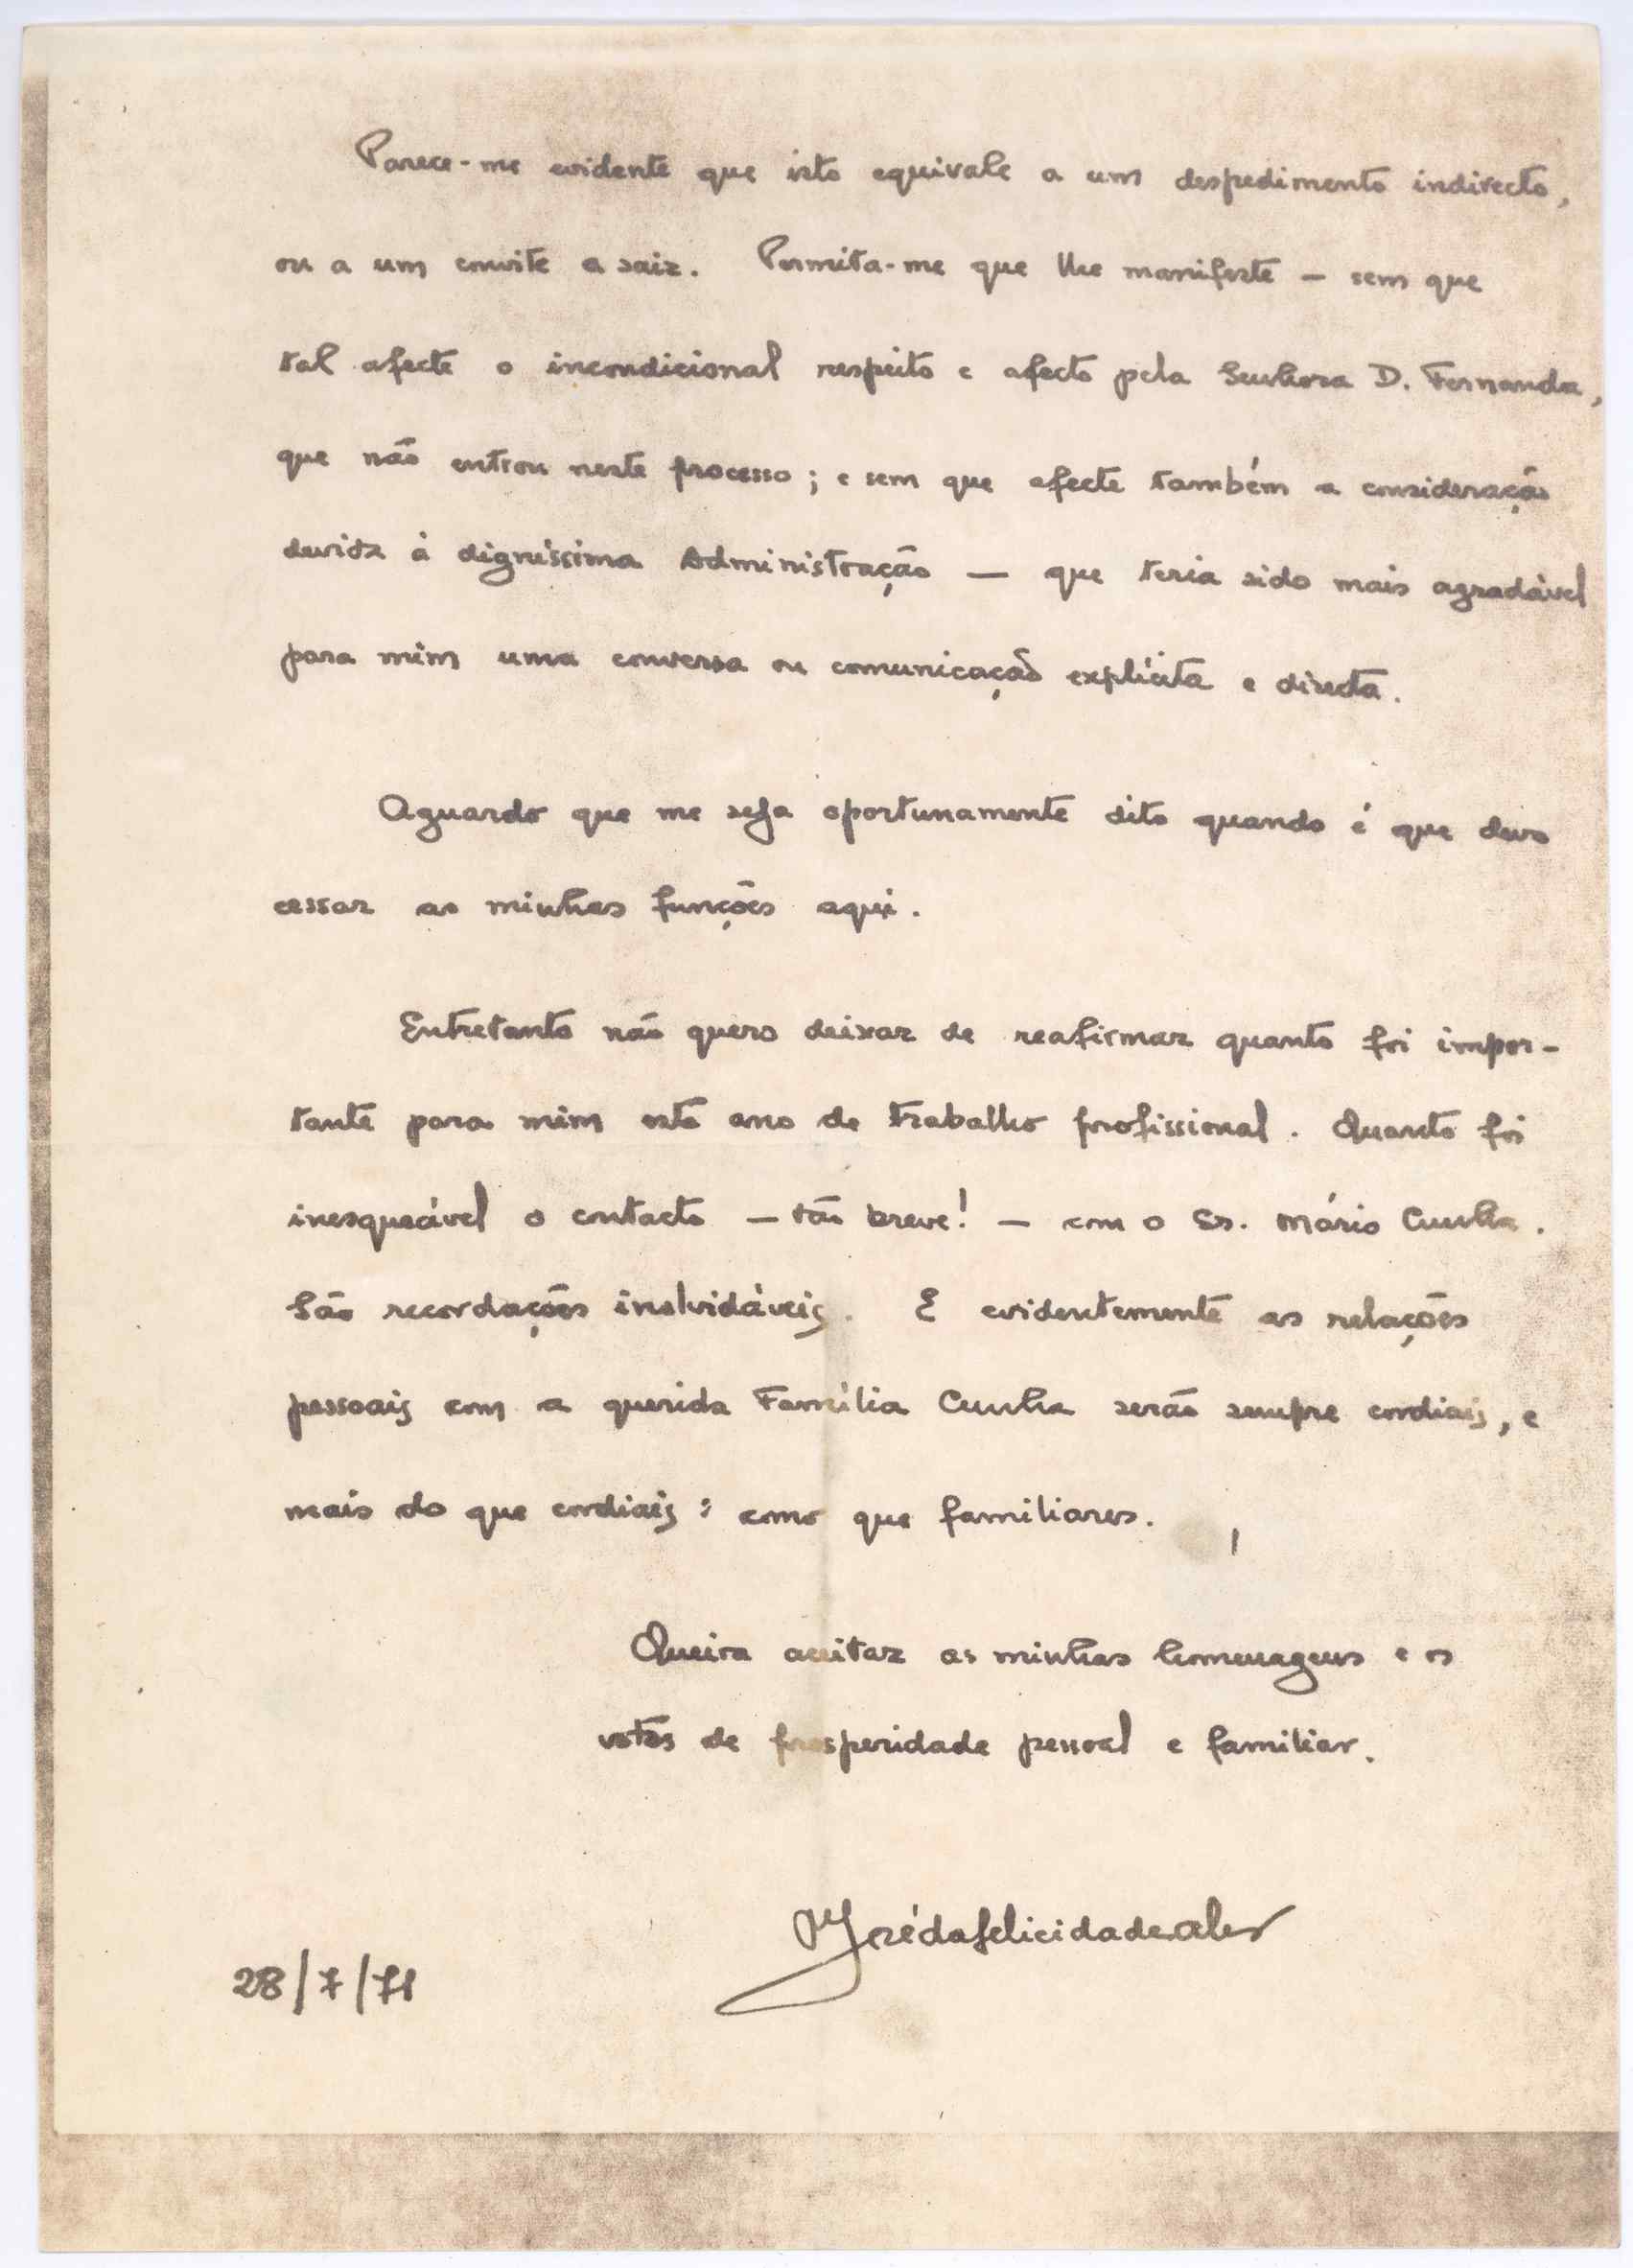 Parece-me evidente que isto equivale a um despedimento indirecto,
ou a um convite a sair. Permita-me que lhe manifeste — sem que
tal afecte o incondicional respeito e afecto pela Senhora D. Fernanda,
que não entrou neste processo; e sem que afecte também a consideração
devida à digníssima Administração — que teria sido mais agradável
para mim uma conversa ou comunicação explícita e directa.
Aguardo que me seja oportunamente dito quando é que devo
cessar as minhas funções aqui.
Entretanto não quero deixar de reafirmar quanto foi impor-
tante para mim este ano de trabalho profissional. Quanto foi
inesquecível o contacto — tão breve! — com o Sr. Mário Cunha.
São recordações inolvidáveis. E evidentemente as relações
pessoais com a querida Família Cunha serão sempre cordiais, e
mais do que cordiais: como que familiares.
Queira aceitar as minhas homenagens e os
votos de prosperidade pessoal e familiar.
Josédafelicidadealves
28/7/71